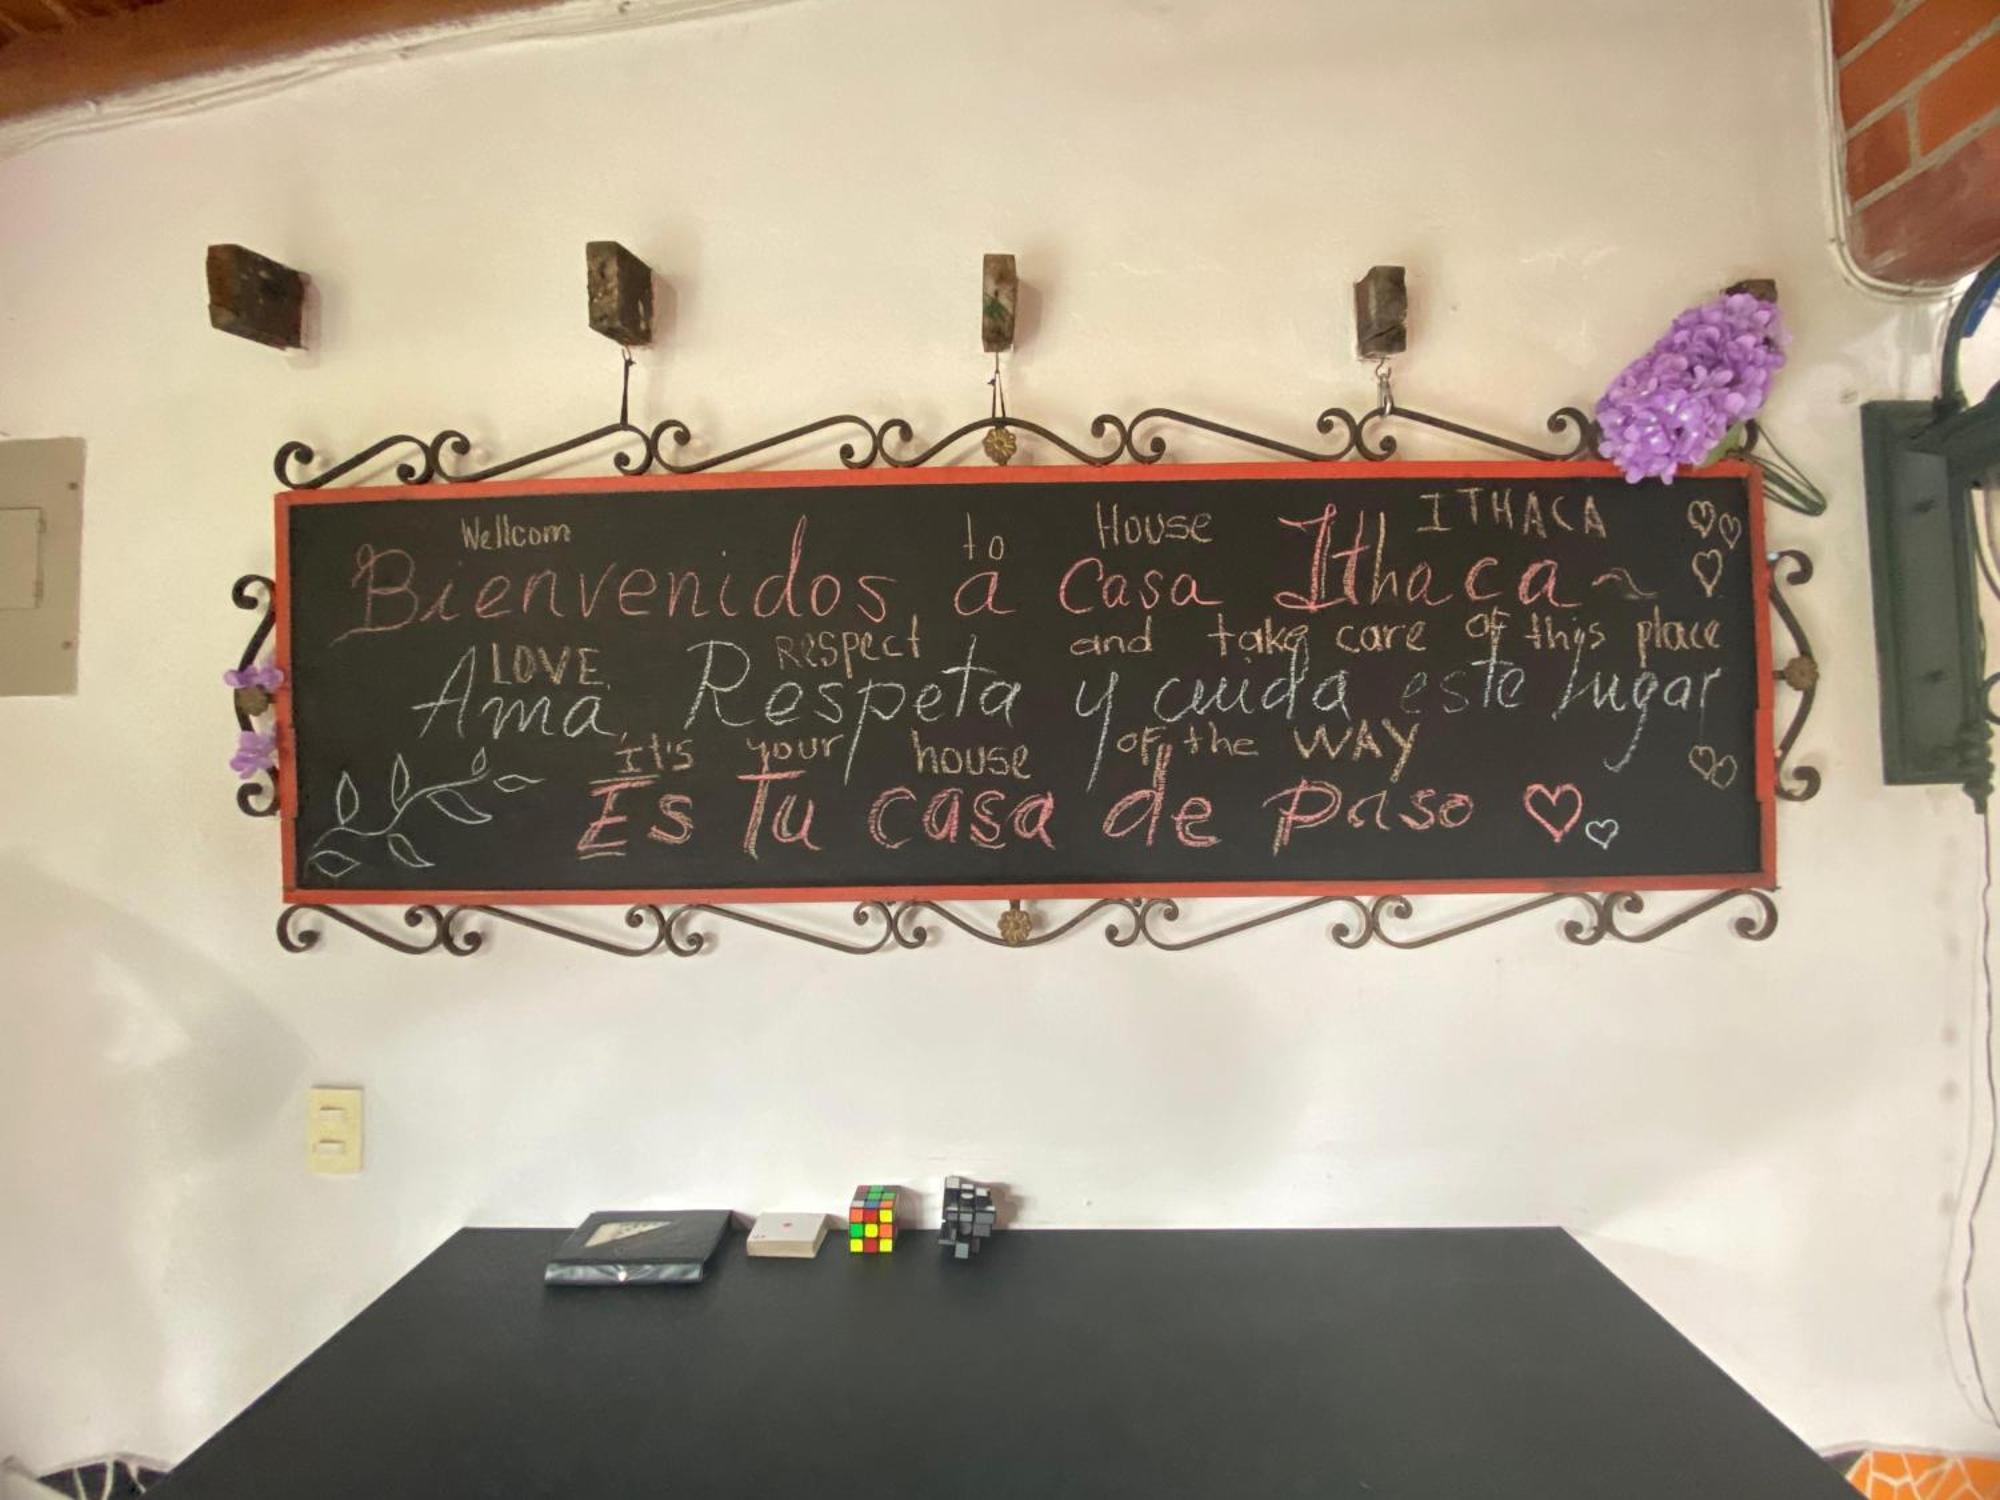 Wellcom to House ITHACA
Bienvenidos a Casa Ithaca
LOVE RESPECT and take care of this place
Ama, Respeta y cuida este lugar
It's your house of the WAY
Es Tu casa de paso